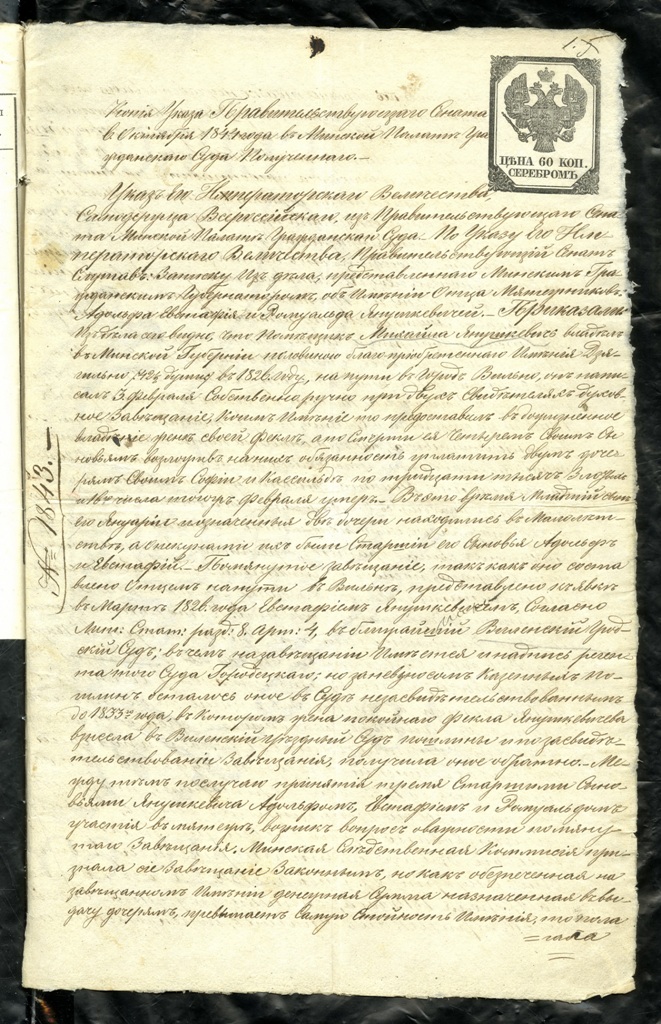 1.5
ЦѢНА 60 КОП.
СЕРЕБРОМЪ
Копія Указа Правительствующаго Сената
Октября 1844 года въ Минской Палатѣ Гра-
жданскаго Суда Полученнаго.—
Указъ Его Императорскаго Величества,
Самодержца Всероссійскаго, изъ Правительствующаго Сена-
та Минской Палатѣ Гражданскаго Суда. По Указу Его Им-
ператорскаго Величества, Правительствующій Сенатъ
Слушавъ: Записку Изъ дѣла, представленнаго Минскимъ Гра-
жданскимъ Губернаторомъ, объ Имѣніи Отца Мятежниковъ
Адольфа Евстафія и Ромуальда Янушкевичей.— Приказали
Изъ дѣла сего видно, что Помѣщикъ Михаила Янушкевичь владѣлъ
въ Минской Губерніи половиною благопріобрѣтеннаго Имѣнія Дзя-
гильно, въ 1826 году, на пути въ Городъ Вильно, онъ напи-
салъ 3. февраля Собственноручно при двухъ Свидѣтеляхъ духов-
ное Завѣщаніе, Коимъ Имѣніе то предоставилъ въ пожизненное
владѣніе женѣ своей Феклѣ, а по Смерти ея Четыремъ Своимъ Сы-
новьямъ возложивъ на нихъ обязанность уплатить двумъ доче-
рямъ Своимъ Софіи и Кассильдѣ по тридцати тысячъ Злотыхъ
числа того же февраля умеръ.— Въ это время Младшій сынъ
его Януарій и означенныя двѣ дочери находились въ Малолѣт-
ствѣ, а опекунами ихъ были Старшіи его Сыновья Адольфъ
и Евстафій.— Помянутое завѣщаніе, такъ какъ оно соста-
влено Отцемъ на пути въ Вильно, представлено къ явкѣ
въ Мартѣ 1826. года Евстафіемъ Янушкевичемъ, Согласно
Лит: Стат: разд: 8. Арт: 4, въ ближайшій Виленскій Грод-
скій Судъ; въ чемъ на завѣщаніи Имѣется и надпись реген-
та того Суда Городецкаго; но за невзносомъ Казенныхъ По-
шлинъ осталось оное въ Судѣ незасвидѣтельствованнымъ
до 1833го года, въ Которомъ жена покойнаго Фекла Янушкевичева
внесла въ Виленскій Уѣздный Судъ пошлины и по засвидѣ-
тельствованіи Завѣщанія, получила оное обратно.— Ме-
жду тѣмъ по случаю принятія тремя Старшими Сыно-
вьями Янушкевича Адольфомъ, Евстафіемъ и Ромуальдомъ
участія въ мятежѣ, возникъ вопросъ о важности помяну-
таго Завѣщанія. Минская Слѣдственная Коммисія при-
знала сіе Завѣщаніе Законнымъ, но какъ обезпеченная на
завѣщанномъ Имѣніи денежная Сумма назначенная въ вы-
дачу дочерямъ, превышаетъ Самую Стоимость Имѣнія, то пола-
=гала
№ 1843.—